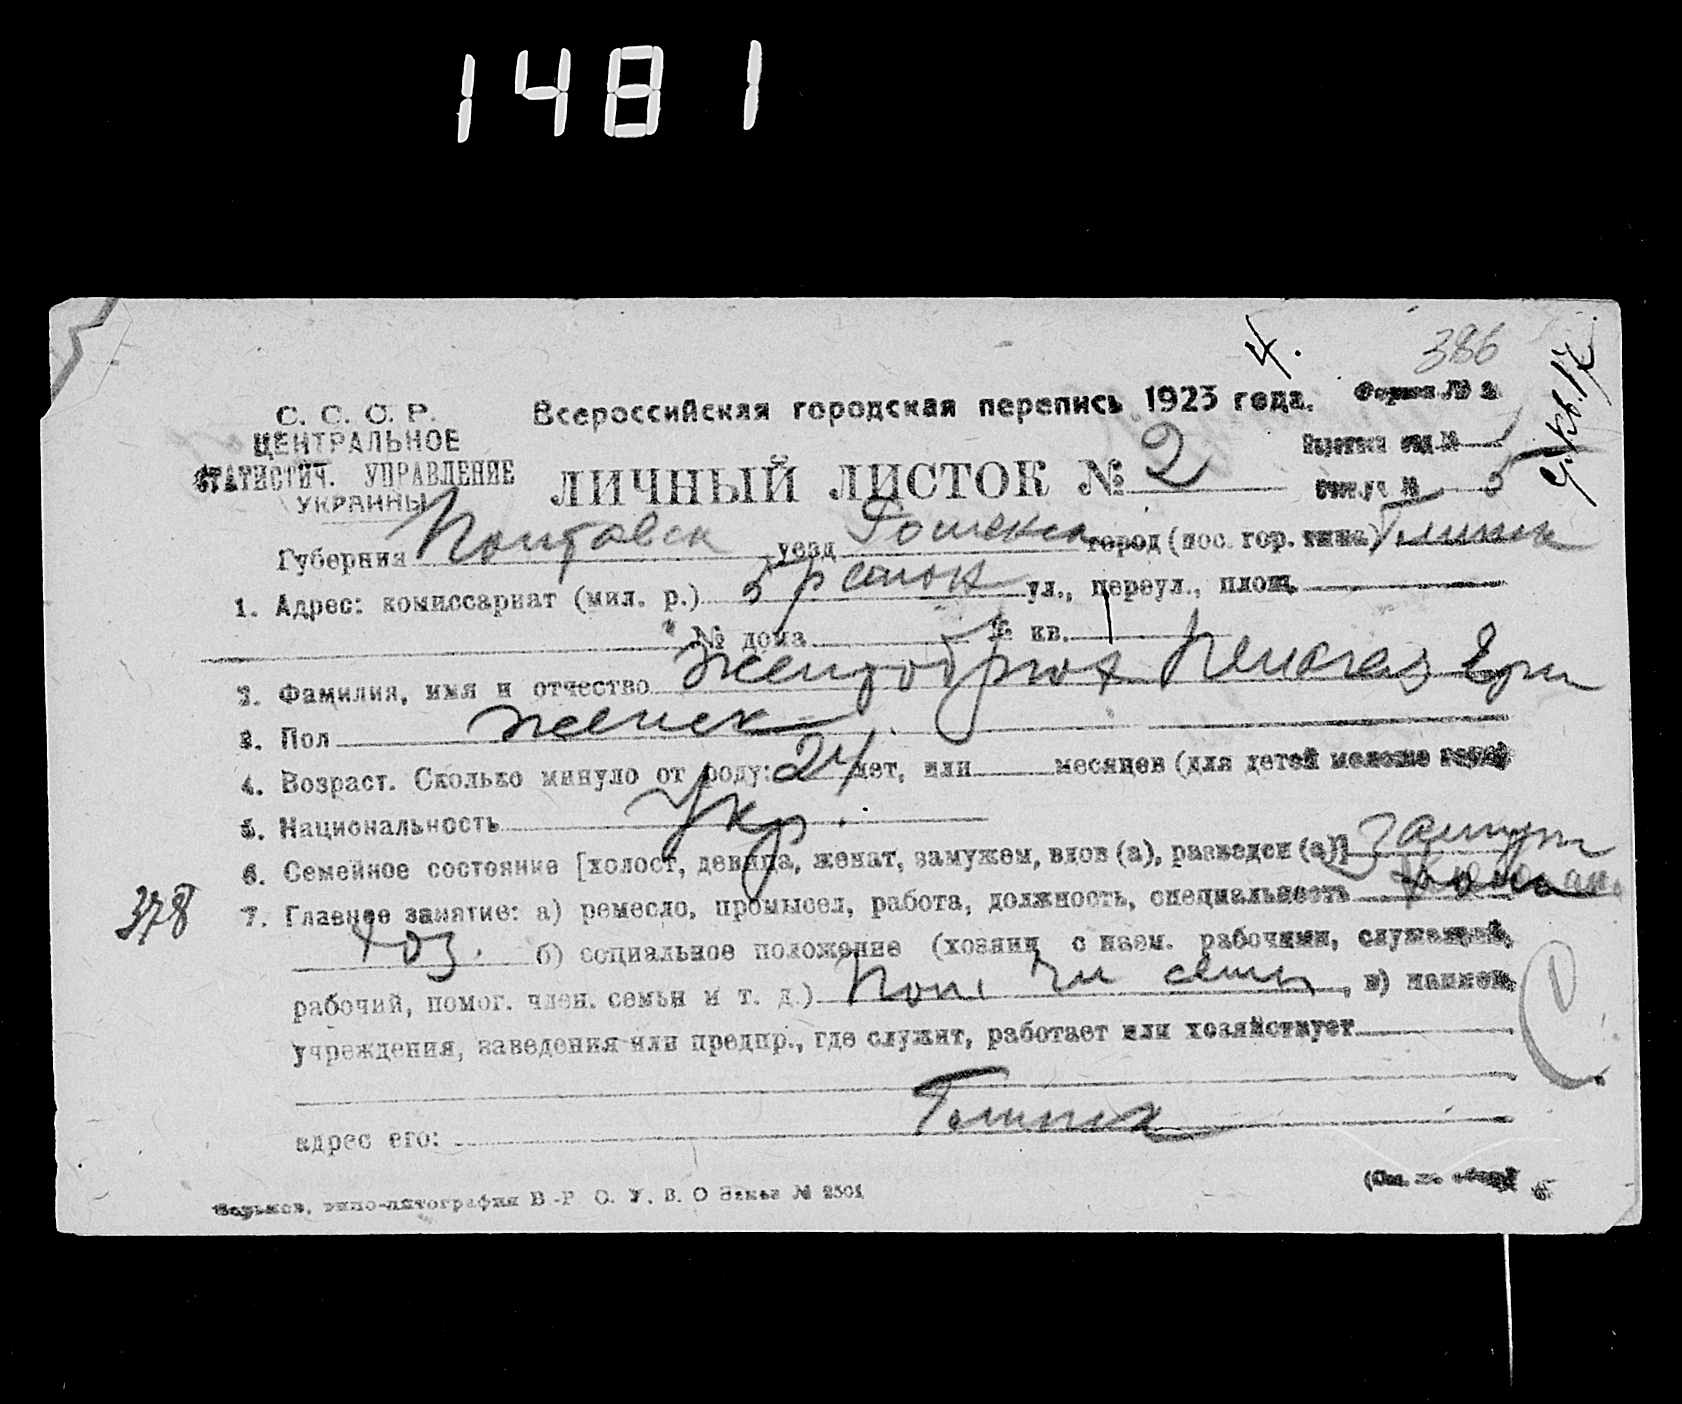 1481
4.
386
Всероссийская городская перепись 1923 года.
Форма № 2
С. С. С. Р.
ЦЕНТРАЛЬНОЕ
СТАТИСТИЧ. УПРАВЛЕНИЕ
УКРАИНЫ
ЛИЧНЫЙ ЛИСТОК № 2
5
Губерния Полтавск уезд город (пос. гор. типа) Глинск
1. Адрес: комиссариат (мил. р.) 5 район ул., переул., площ.
№ дома № кв.
2. Фамилия, имя и отчество Желтобрюх Пелагея
3. Пол женск
4. Возраст. Сколько минуло от роду: 24 лет, или месяцев (для детей моложе года)
5. Национальность Укр.
6. Семейное состояние [холост, девица, женат, замужем, вдов (а), разведен (а)] замуж
378
7. Главное занятие: а) ремесло, промысел, работа, должность, специальность
хоз. б) социальное положение (хозяин с наем. рабочими, служащий,
рабочий, помог. член. семьи и т. д.) Пом. чл семьи, в) наимен.
учреждения, заведения или предпр., где служит, работает или хозяйствует
адрес его: Глинск
(См. на обор.)
Харьков, типо-литография В-Р О. У. В. О Заказ № 2501